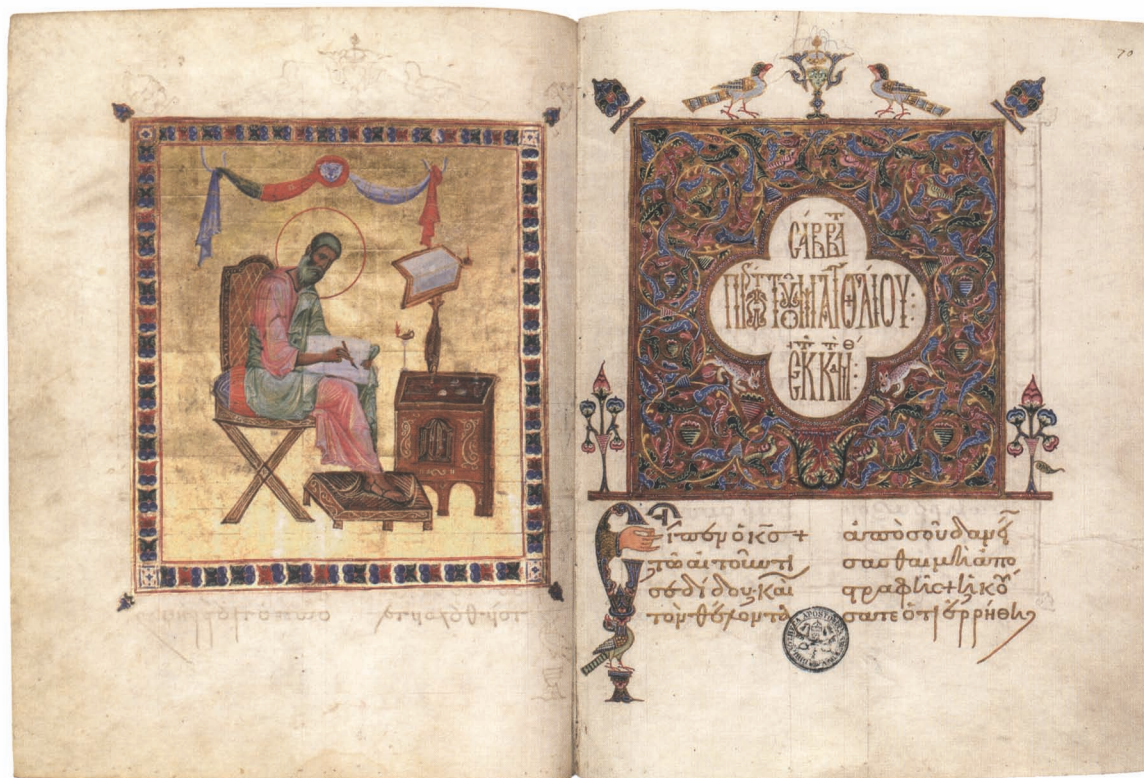 70
CΑΒΒΑΤ
ΤΟΥ ΜΑΤΘΑΙΟΥ:
Εἶπεν ὁ κ̅ς̅ +
τῶ αἰτοῦντί
σε δίδου· καὶ
τὸν θέλοντα
ἀπὸ σοῦ δανεί
σασθαι μὴ ἀπο
στραφῆς + ἠκού
σατε ὅτι ἐρρήθη